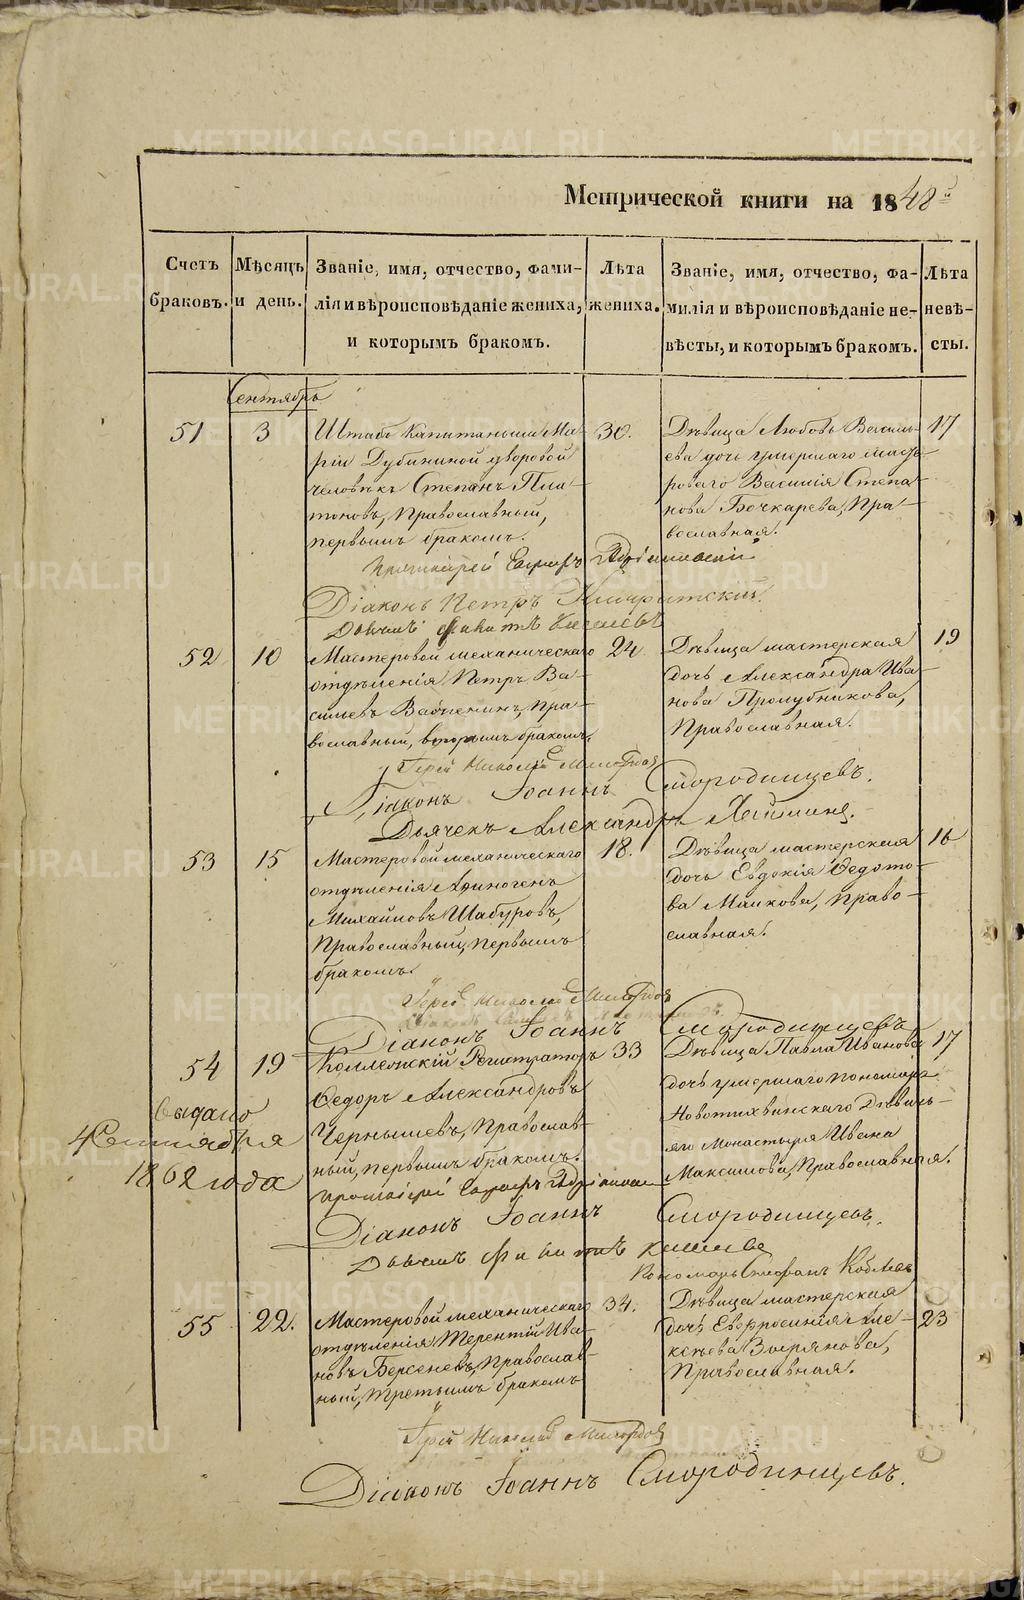 Метрической книги на 1848й
Счетъ браковъ.
Мѣсяцъ и день.
Званіе, имя, отчество, фами-
лія и вѣроисповѣданіе жениха,
и которымъ бракомъ.
Лѣта жениха.
Званіе, имя, отчество, фа-
милія и вѣроисповѣданіе не-
вѣсты, и которымъ бракомъ.
Лѣта невѣ-
сты.
Сентябрь
51
3
Штабъ Капитанши Ма-
ріи Дубининой дворовой
человѣкъ Степанъ Пла-
тоновъ, Православный,
первымъ бракомъ.
30.
Дѣвица Любовь Василь-
ева дочь умершаго масте-
роваго Василія Степа-
нова Бочкарева, Пра-
вославная.
17
Діаконъ Петръ
52
10
Мастеровой механическаго
отдѣленія Петръ Ва-
сильевъ православный, вторымъ бракомъ.
24.
Дѣвица мастерская
дочь Александра Ива-
нова Пролубникова,
Православная.
19
Іерей Николай
Діаконъ Іоаннъ Смородинцевъ.
Дьячекъ Александръ
53
15
Мастеровой механическаго
отдѣленія
Михайловъ Шабуровъ,
Православный, первымъ
бракомъ.
18.
Дѣвица мастерская
дочь Евдокія Ѳедото-
ва Малкова, право-
славная.
16
Іерей Николай
Діаконъ Іоаннъ Смородинцевъ
54
19
Выдано
4 Сентября
1862 года
Коллежскій Регистраторъ
Ѳедоръ Александровъ
Чернышевъ, Православ-
ный, первымъ бракомъ.
33
Дѣвица Павла Иванова
дочь умершаго пономаря
Новотихвинскаго Дѣвичь-
яго Монастыря Ивана
Максимова, Православная.
17
Діаконъ Іоаннъ Смородинцевъ.
Пономарь Стефанъ
55
22.
Мастеровой механическаго
отдѣленія Терентій Ива-
новъ Берсеневъ, Православ-
ный, третьимъ бракомъ
34.
Дѣвица мастерская
дочь Евфросинія Але-
ксѣева
Православная.
23
Іерей Николай
Діаконъ Іоаннъ Смородинцевъ.
METRIKI.GASO-URAL.RU